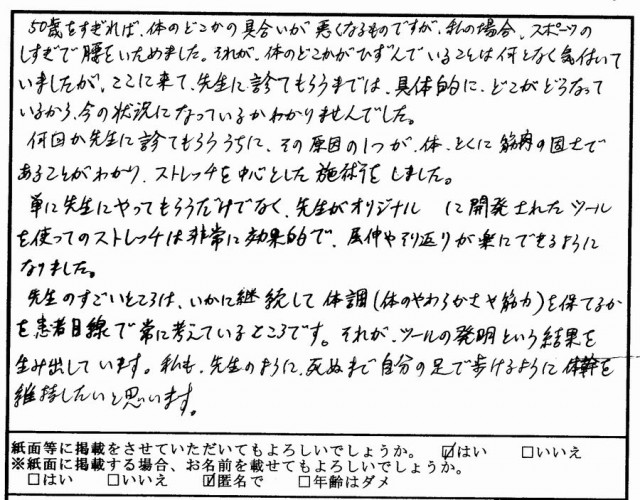 50歳をすぎれば、体のどこかの具合いが悪くなるものですが、私の場合、スポーツの
しすぎで腰をいためました。それが、体のどこかがひずんでいることは何となく気付いて
いましたが、ここに来て、先生に診てもらうまでは、具体的に、どこがどうなって
いるから、今の状況になっているかわかりませんでした。
何回か先生に診てもらううちに、その原因の1つが、体、とくに筋肉の固さで
あることがわかり、ストレッチを中心とした施術をしました。
単に先生にやってもらうだけでなく、先生がオリジナルに開発されたツール
を使ってのストレッチは非常に効果的で、屈伸やそり返りが楽にできるように
なりました。
先生のすごいところは、いかに継続して体調(体のやわらかさや筋力)を保てるか
を患者目線で常に考えているところです。それが、ツールの発明という結果を
生み出しています。私も、先生のように、死ぬまで自分の足で歩けるように体幹を
維持したいと思います。
紙面等に掲載をさせていただいてもよろしいでしょうか。 ☑はい □いいえ
※紙面に掲載する場合、お名前を載せてもよろしいでしょうか。
□はい □いいえ ☑匿名で □年齢はダメ